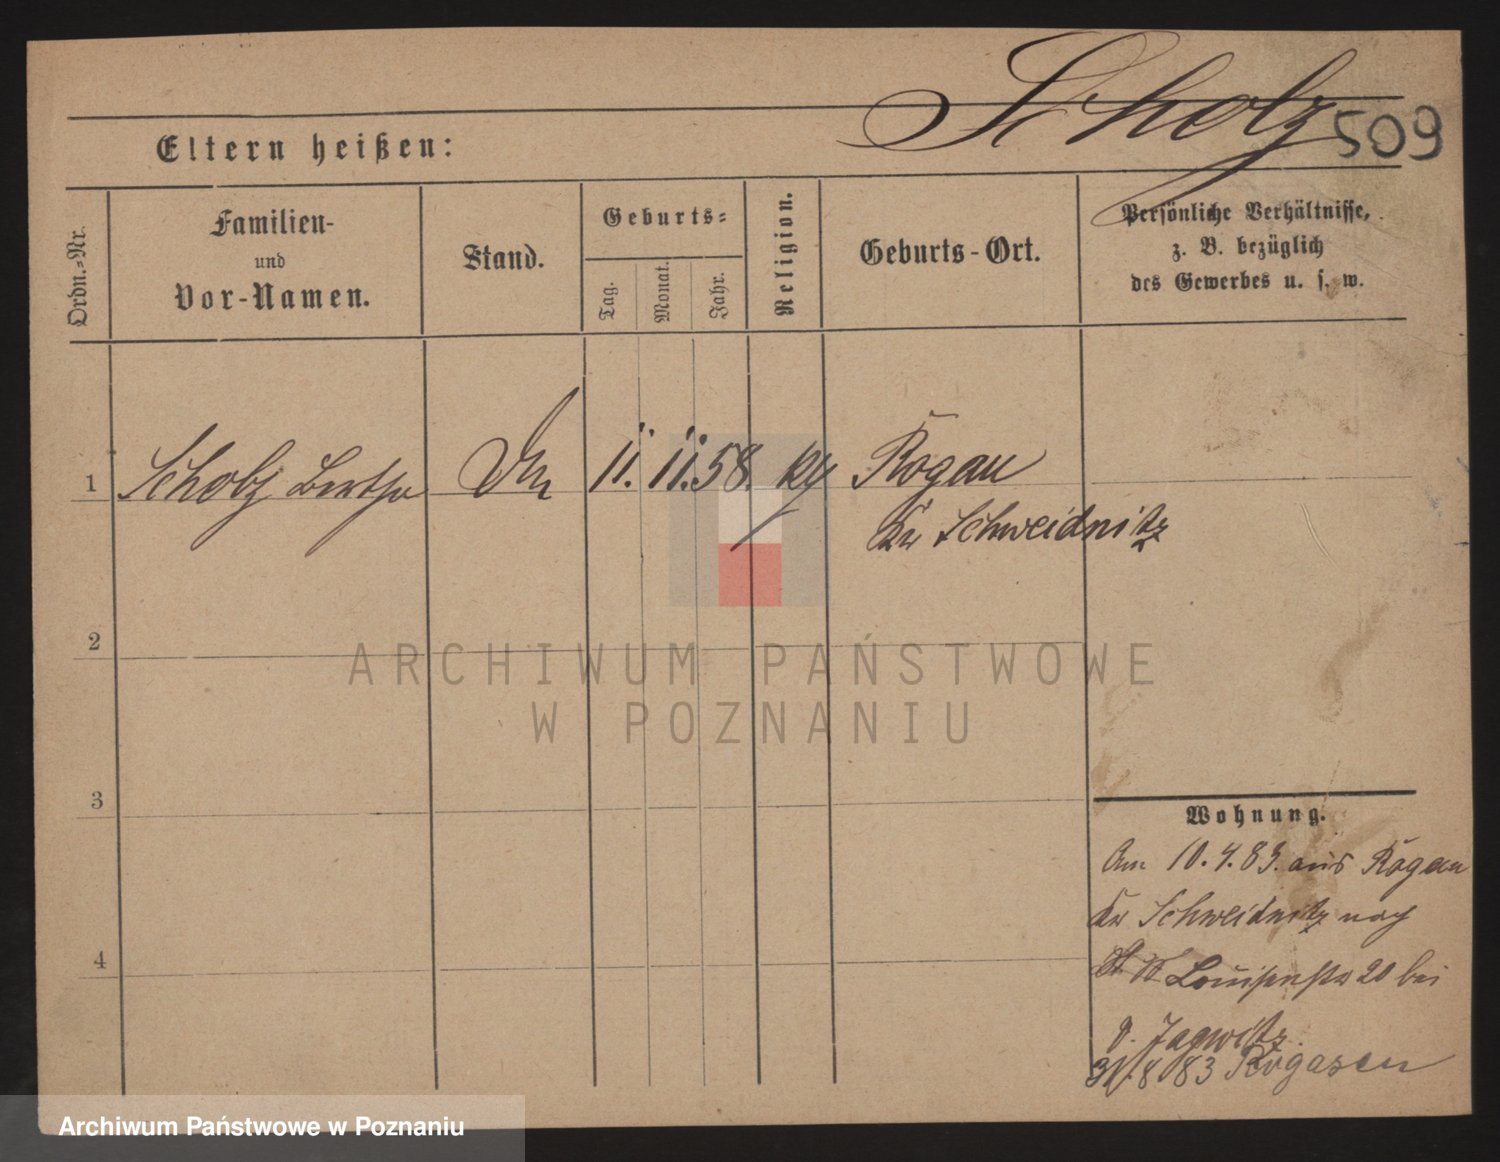 Scholz
509
Eltern heißen:
Ordn.=Nr.
Familien-
und
Vor-Namen.
Stand.
Geburts=
Tag.
Monat.
Jahr.
Religion.
Geburts-Ort.
Persönliche Verhältnisse,
z. B. bezüglich
des Gewerbes u. s. w.
1 Scholz Bertha 11. 11. 58. Rogau
Kr Schweidnitz
2
3
4
Wohnung.
Am 10.4.83. aus Rogau
Kr Schweidnitz nach
Louisenstr 20 bei
v. Jagwitz
31/8 83 Rogasen
ARCHIWUM PAŃSTWOWE
W POZNANIU
Archiwum Państwowe w Poznaniu